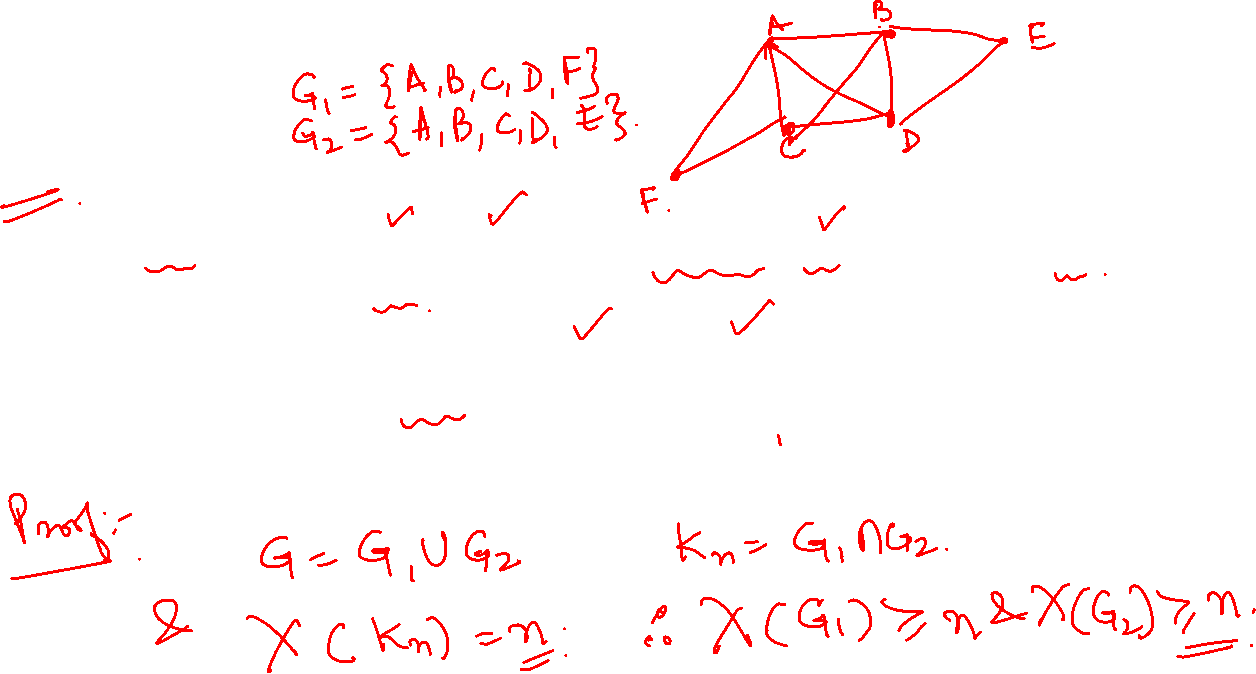 A B E
G₁ = {A, B, C, D, F}
G₂ = {A, B, C, D, E}.
C D
F.
Proof:-
G = G₁ ∪ G₂ Kn = G₁ ∩ G₂.
& χ(Kn) = n. ∴ χ(G₁) ≥ n & χ(G₂) ≥ n.